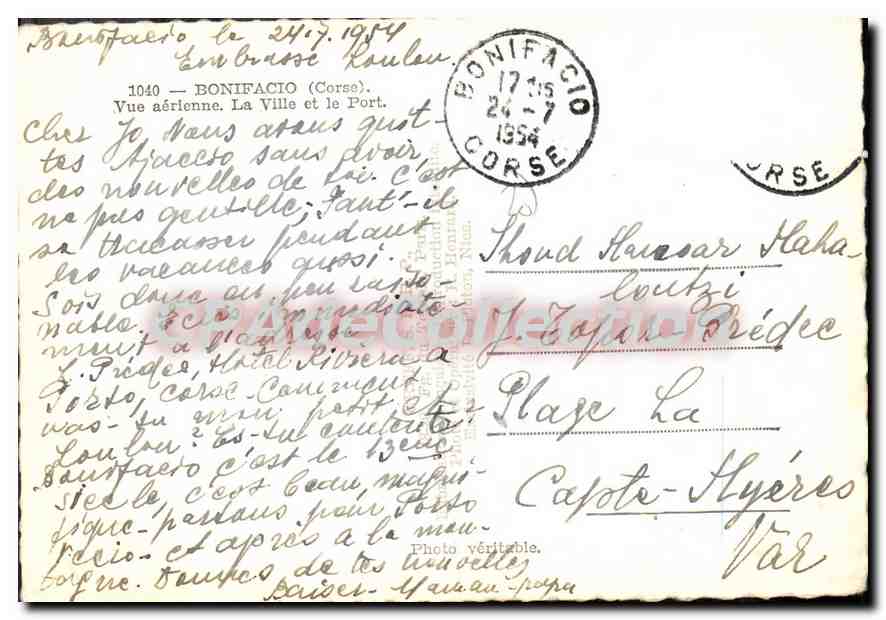 Bonifacio le 24.7.1954
Embrasse Loulou
1040 — BONIFACIO (Corse).
Vue aérienne. La Ville et le Port.
Cher Jo, Nous avons quit-
tes Ajaccio sans avoir
des nouvelles de toi. C'est
ne pas gentille; Faut-il
se tracasser pendant
les vacances aussi.
Sois donc un peu raiso-
nable. Ecris immediate
ment à l'adresse
J. Prédec, Hotel Riviera à
Porto, corse. Comment
vas-tu mon petit
Loulou? Es-tu contente
Bonifacio c'est le 13ème
siecle, c'est beau, magni-
fique- partons pour Porto
vecio- et après à la mon-
tagne. Donnes de tes nouvelles
Baiser- Maman-papa
Photo véritable.
BONIFACIO
17 H 15
24 - 7
1954
CORSE
ORSE
Maha-
loutzi
Prédec
Plage La
Capte-Hyéres
Var
CPADeCollection